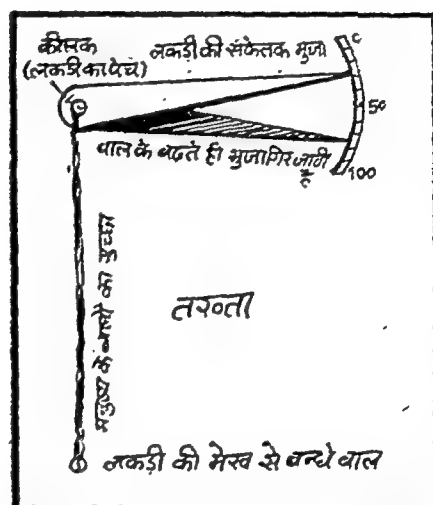 कीलक
(लकडी का पेंच)
लकड़ी की संकेतक भुजा
०
50
100
बाल के बढ़ते ही भुजा गिर जाती
है
मनुष्य के बालों का गुच्छा
तख्ता
लकड़ी की मेख से बन्धे बाल